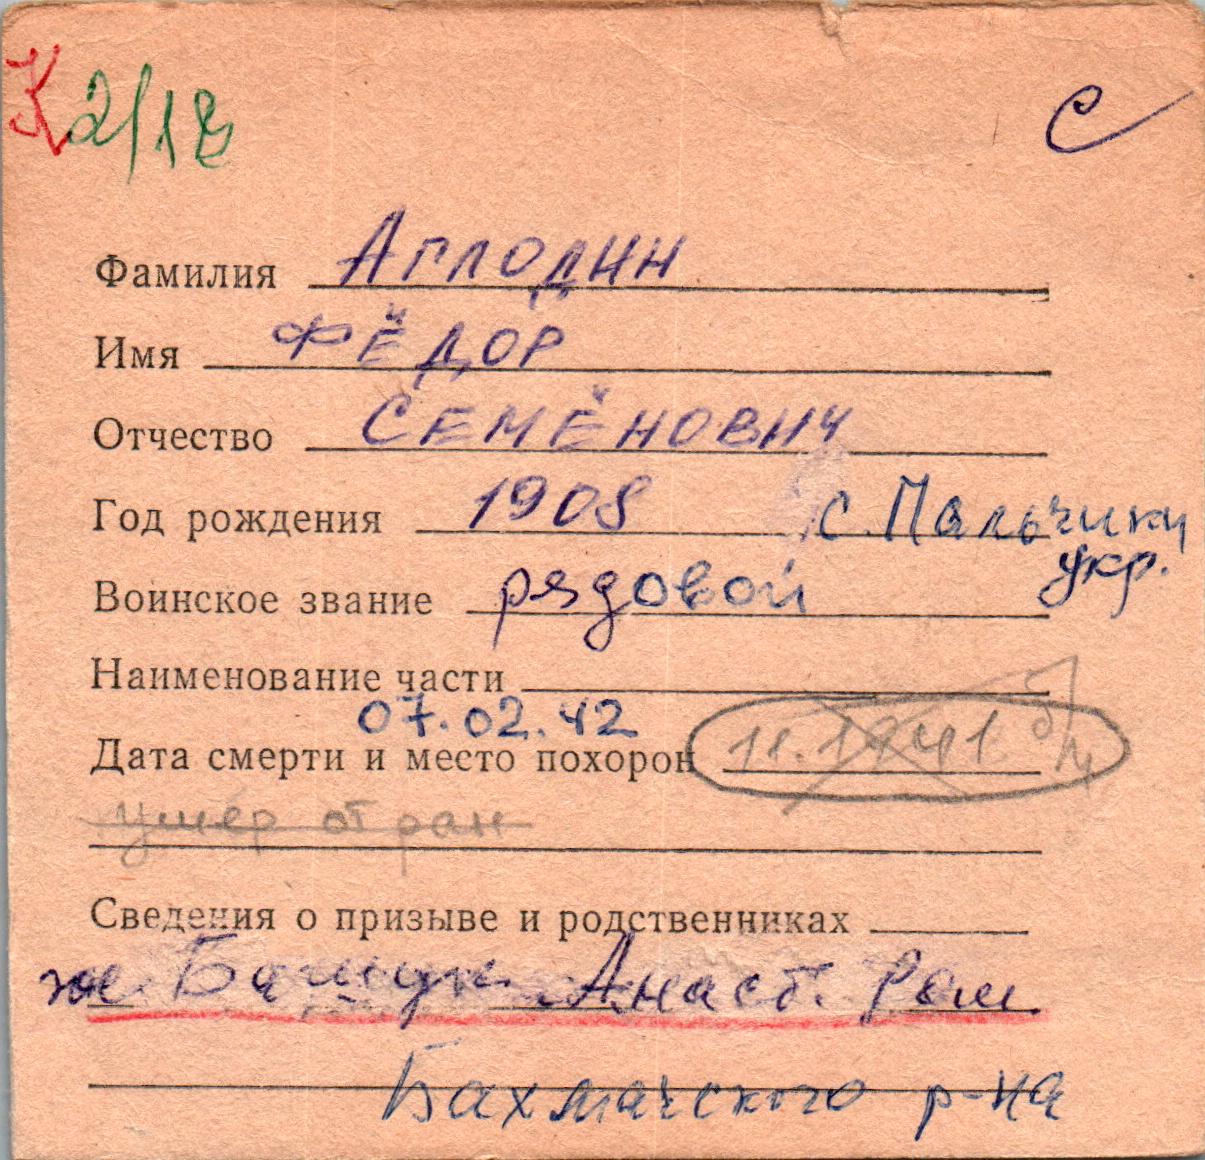 К 2/18
С
Фамилия Аглодин
Имя Фёдор
Отчество Семёнович
Год рождения 1908 с. Пальчики
укр.
Воинское звание рядовой
Наименование части
07.02.42 б/
Дата смерти и место похорон 11.1941
умер от ран
Сведения о призыве и родственниках
ж. Анаст. Ром
Бахмачского р-на